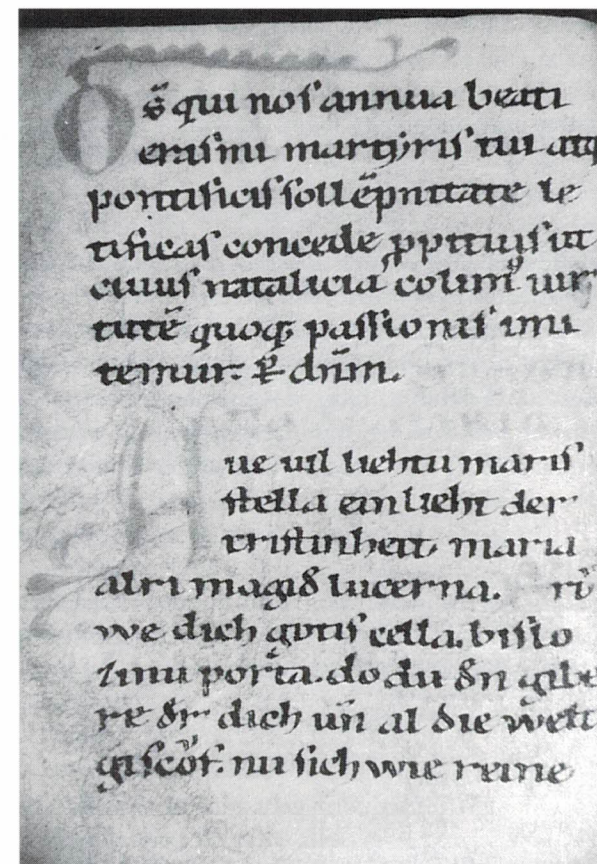 Ds̄ qui nos annua beati
erasmi martyris tui atq
pontificis sollēpnitate le
tificas concede ꝓpitius ut
cuius natalicia colim⁹ uir
tutē quoq; passionis imi
temur. ꝑ dn̄m.
Aue uil liehtu maris
stella ein lieht der
cristinheit, maria
alri magid lucerna. rv̂
we dich gotis cella. bislo
zinu porta. do du dn gibe
re dr dich un̄ al die welt
giscôf. nu sich wie reine